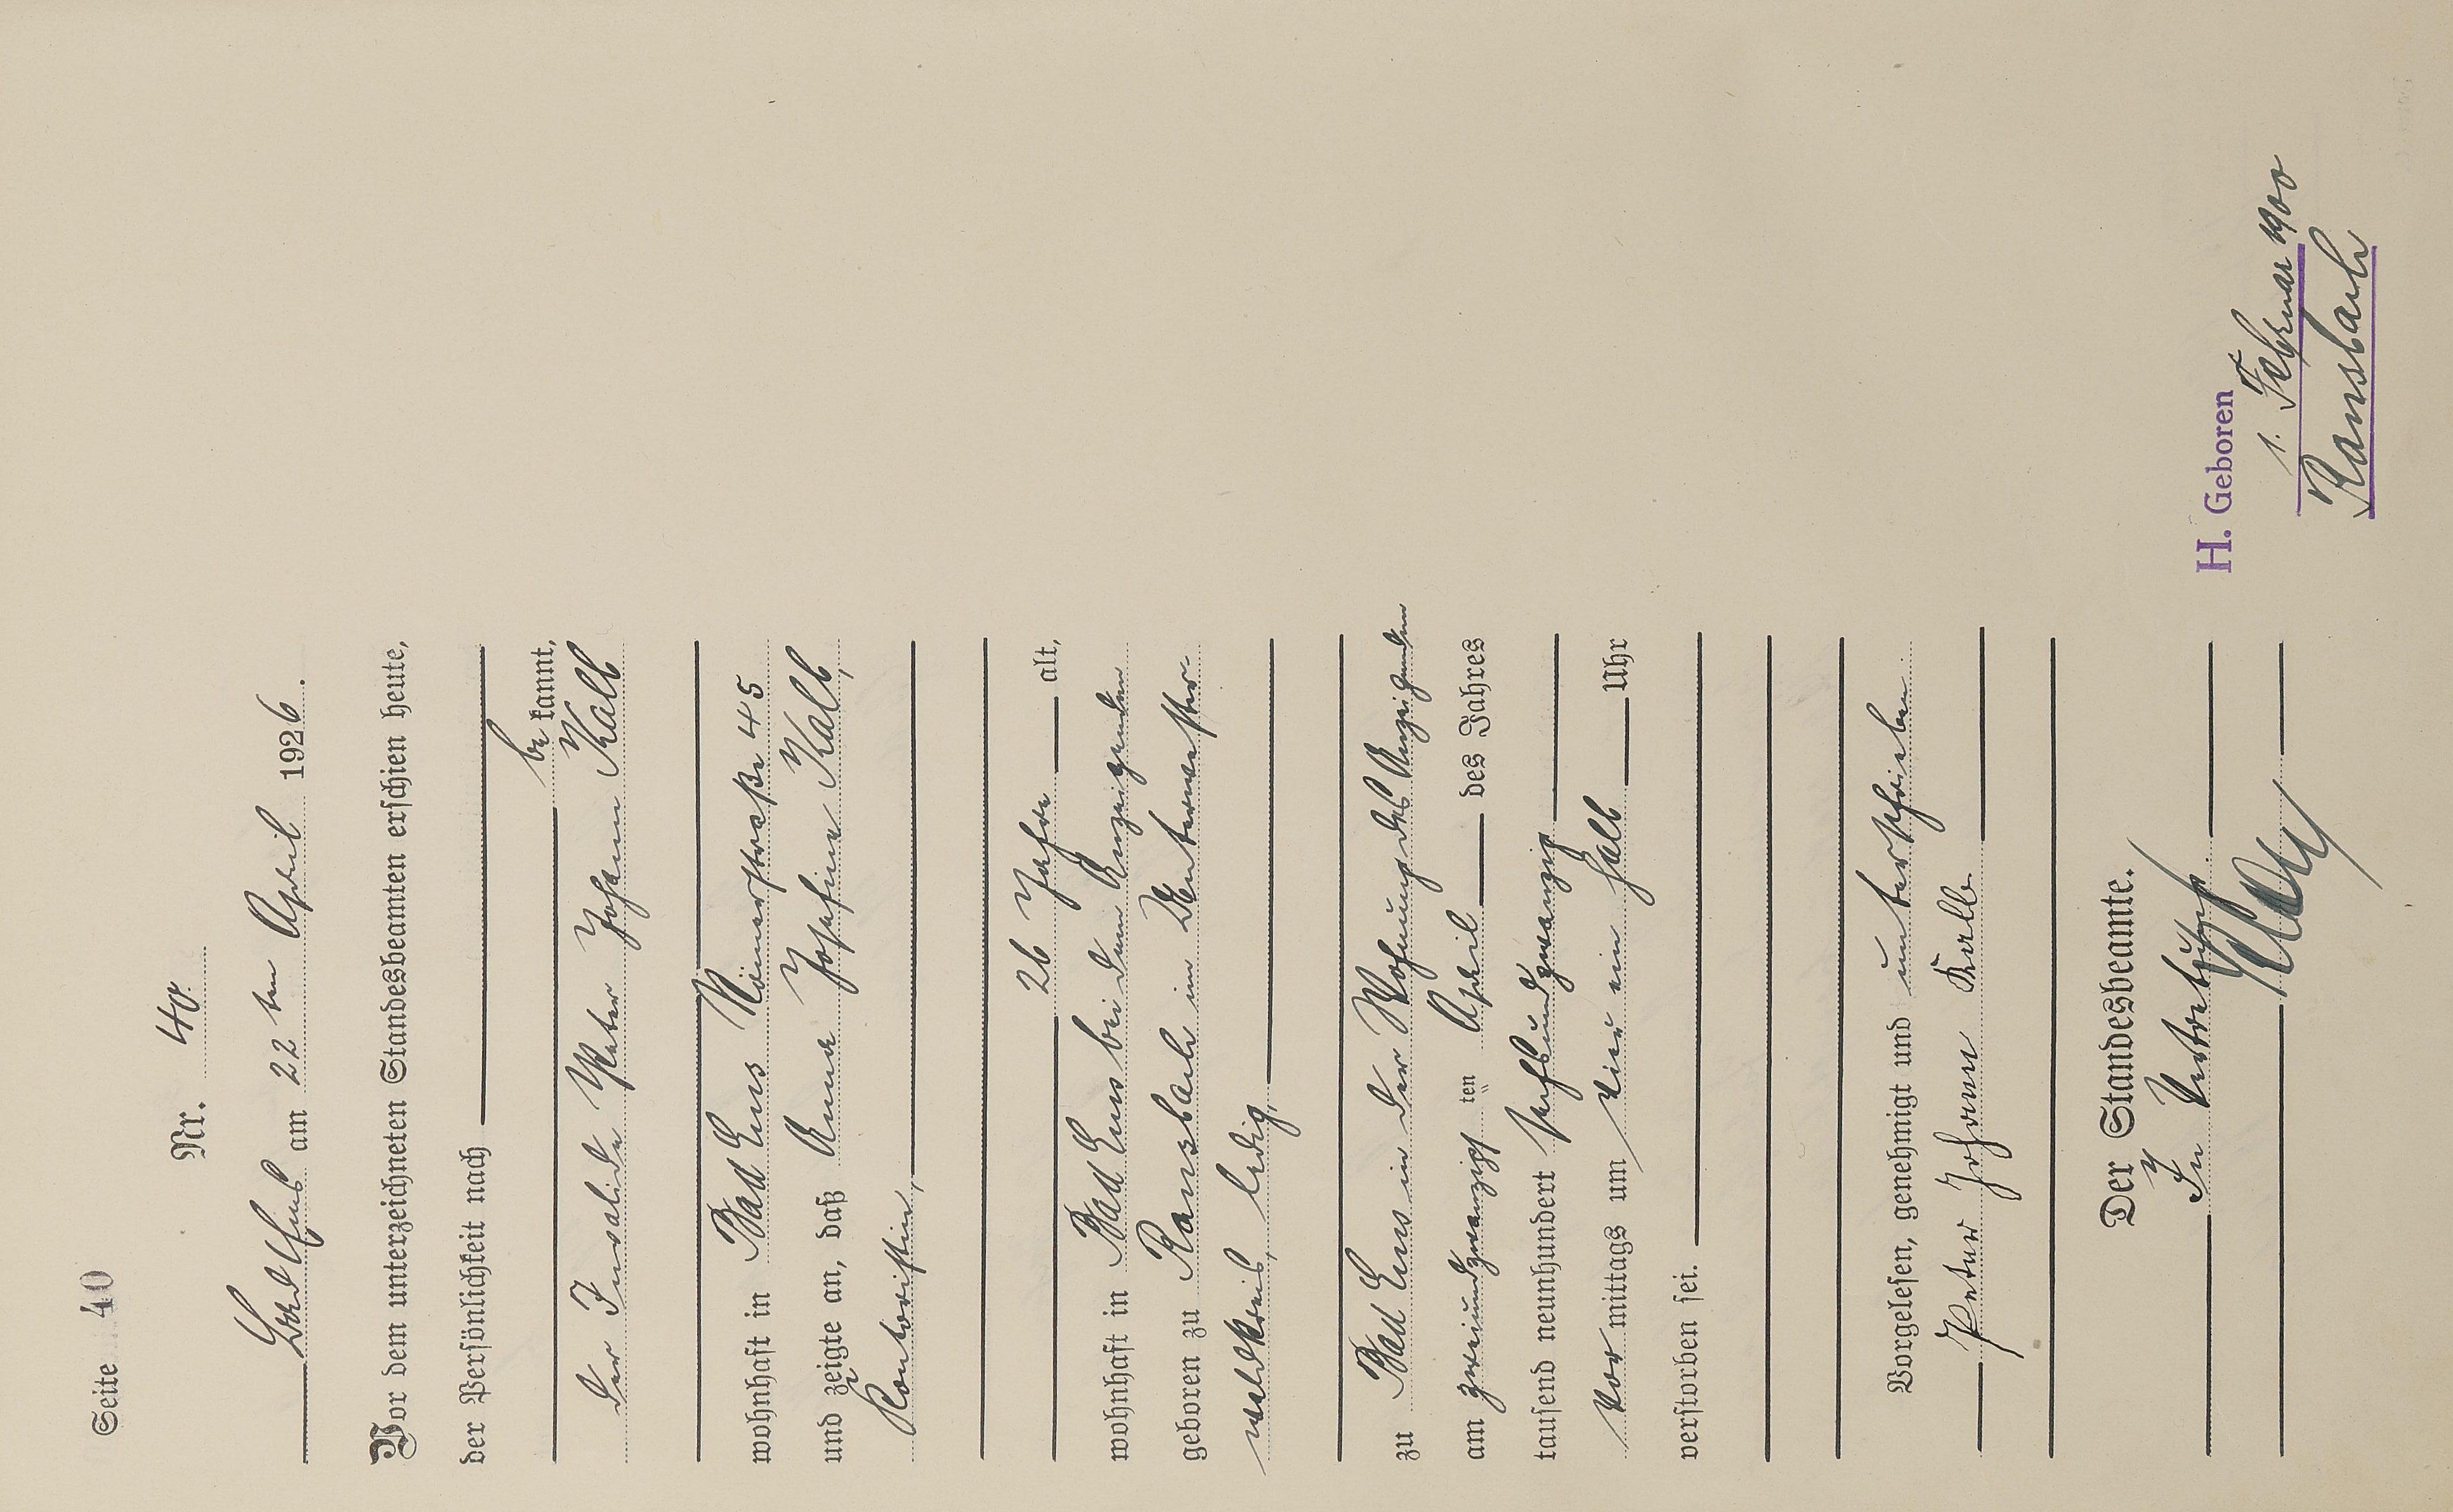 Seite 40
Nr. 40.
Bad Ems am 22 ten April 1926.
Vor dem unterzeichneten Standesbeamten erschien heute,
der Persönlichkeit nach
be kannt,
der Invalide Peter Johann Kalb
wohnhaft in Bad Ems Römerstraße 45
und zeigte an, daß Anna Josefine Kalb,
Kontoristin,
26 Jahre alt,
wohnhaft in Bad Ems bei dem Anzeigenden
geboren zu Ransbach im Unterwester-
waldkreis, ledig,
zu Bad Ems in der Wohnung des Anzeigenden
am zweiundzwanzigsten ten April des Jahres
tausend neunhundert sechsundzwanzig
Vor mittags um vier ein halb Uhr
verstorben sei.
Vorgelesen, genehmigt und unterschrieben.
Peter Johann Kalb.
Der Standesbeamte.
In Vertretung
H. Geboren
1. Februar 1900
Ransbach